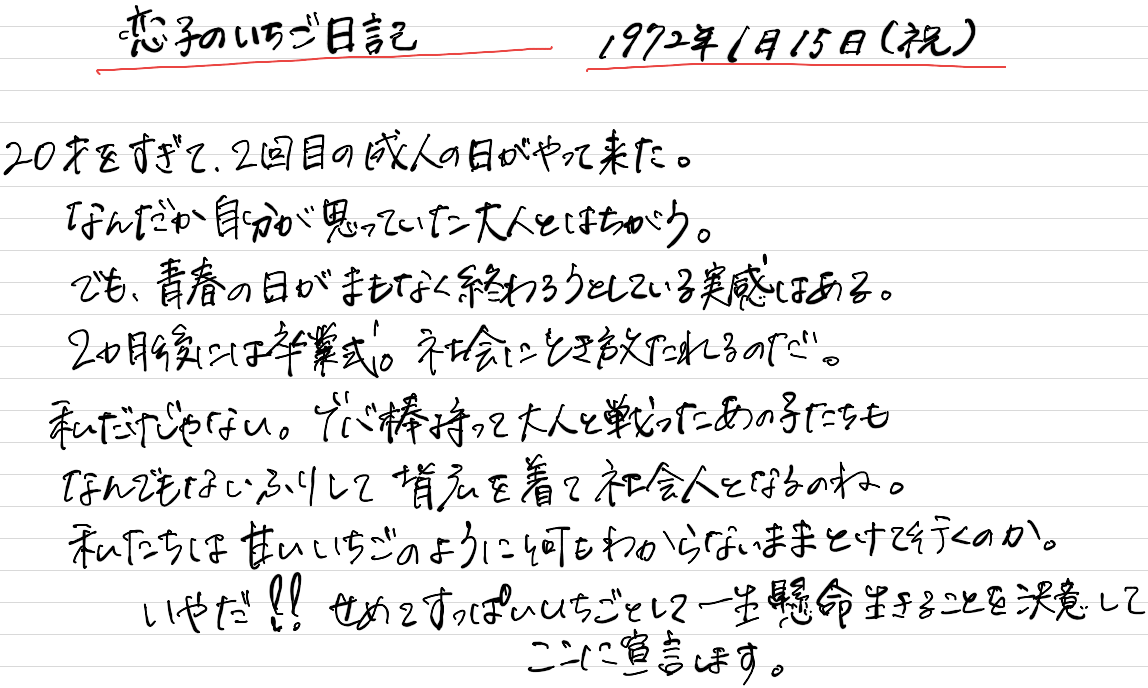 恋子のいちご日記　1972年1月15日(祝)
20才をすぎて、2回目の成人の日がやって来た。
なんだか自分が思っていた大人とはちがう。
でも、青春の日がまもなく終わろうとしている実感はある。
2か月後には卒業式。社会にとき放たれるのだ。
私だけじゃない。ゲバ棒持って大人と戦ったあの子たちも
なんでもないふりして背広を着て社会人となるのね。
私たちは甘いいちごのように何もわからないままとけて行くのか。
いやだ!! せめてすっぱいいちごとして一生懸命生きることを決意して
ここに宣言します。